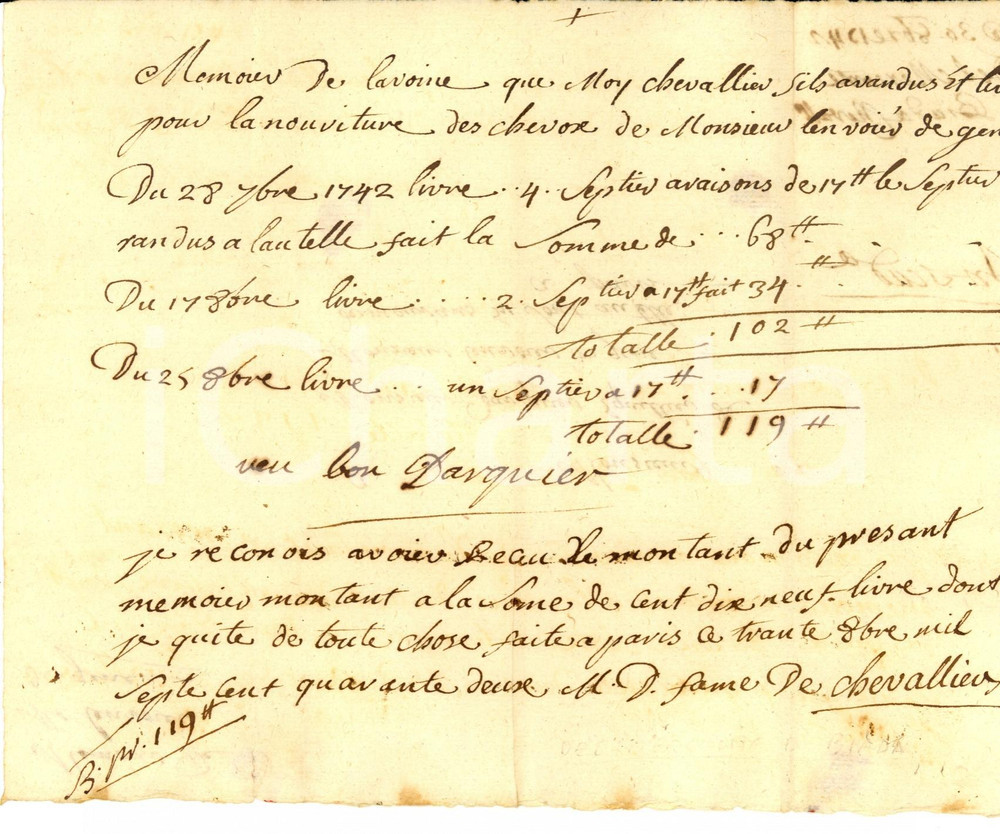 Memoier De lavoine que Moy chevallier fils avandus Et
pour la nouriture des chevoxe de Monsieur lenvoié de gen
Du 28 7bre 1742 livre .. 4. Septier araisons de 17tt le Septier
randus a lautelle fait la Somme de ... 68tt
Du 17 8bre livre ..... 2. Septier a 17tt fait 34 tt
totalle . 102 tt
Du 25 8bre livre ... un Septier a 17tt . . 17
totalle . 119 tt
veu bon Darquier
je reconois avoier Reau Le montant du presant
memoier montant a la Some de Cent dix neuf livre dont
je quite de toute chose faite a paris ce trante 8bre mil
Septe Cent quarante deuxe M. D. fame De chevallier
B. pr. 119tt
iCharta